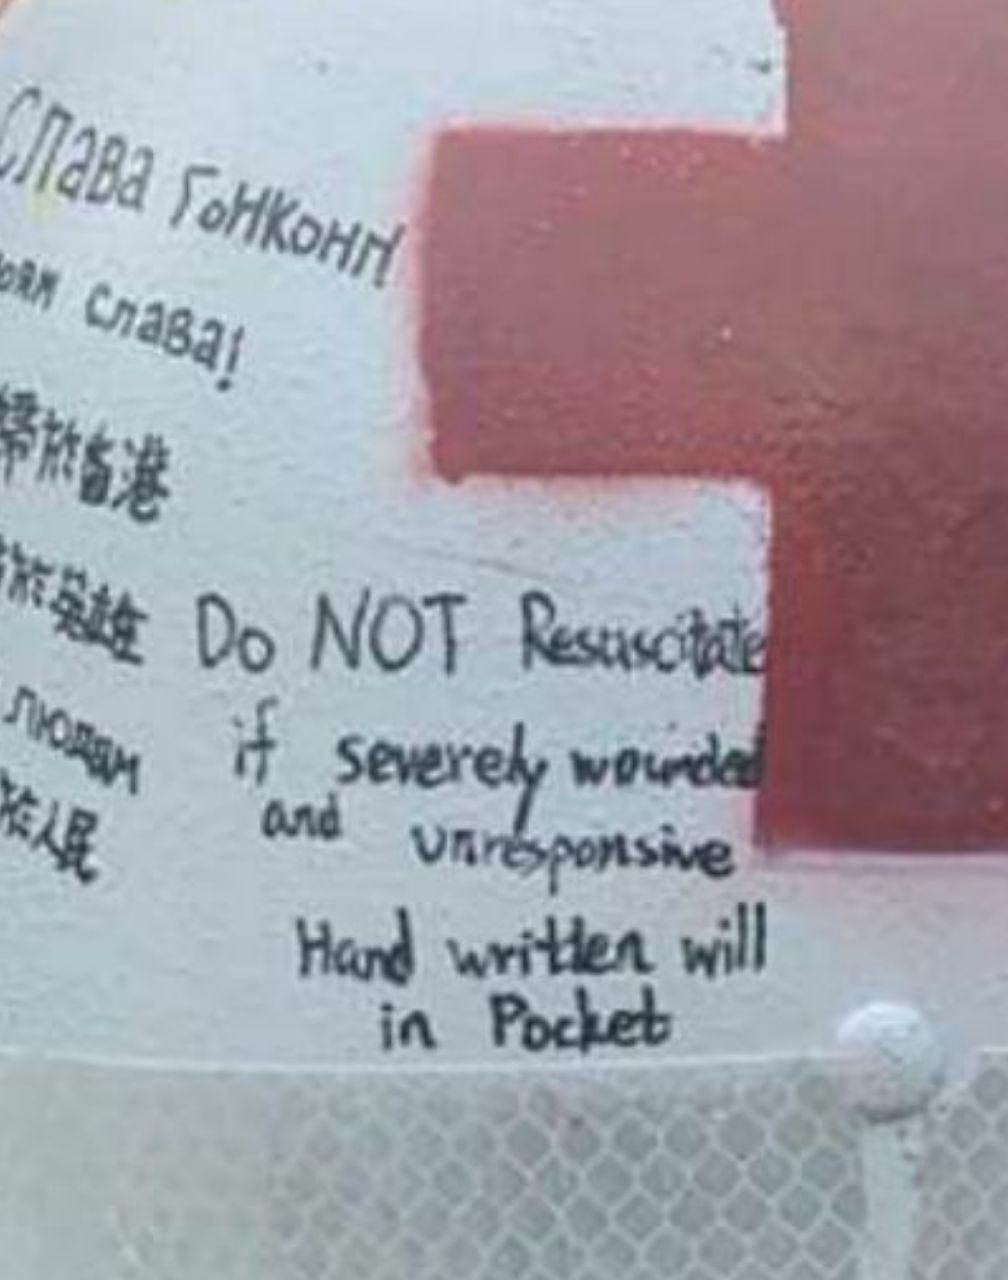 Слава Гонконг!
слава!
歸於香港
於英雄
людям
於人民
Do NOT Resuscitate
if severely wounded
and unresponsive
Hand written will
in Pocket